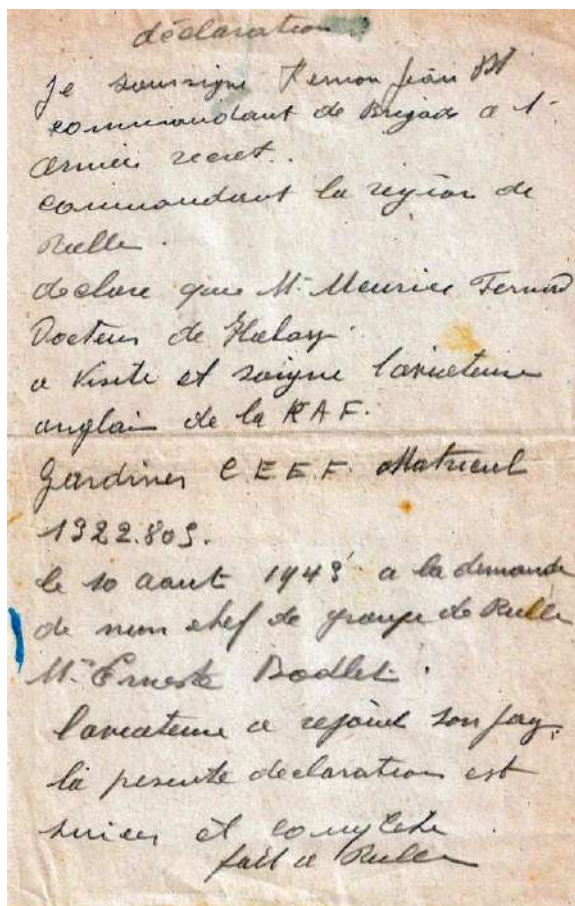 déclaration
je soussigne Pernon Jean Bt
commandant de Brigade a l'
armée secret.
commandant la region de
Rulle.
declare que Mr. Meurice Fernand
Docteur de Halany.
a visite et soigne laviateur
anglais de la RAF.
Gardiner C.E.E.F. Matricul
1322.809.
le 10 aout 1943 a la demande
de mon chef de groupe de Rulle
Mr Erneste Bodlet.
laviateur a rejoint son pay.
la presente declaration est
sincer et complete
fait a Rulle